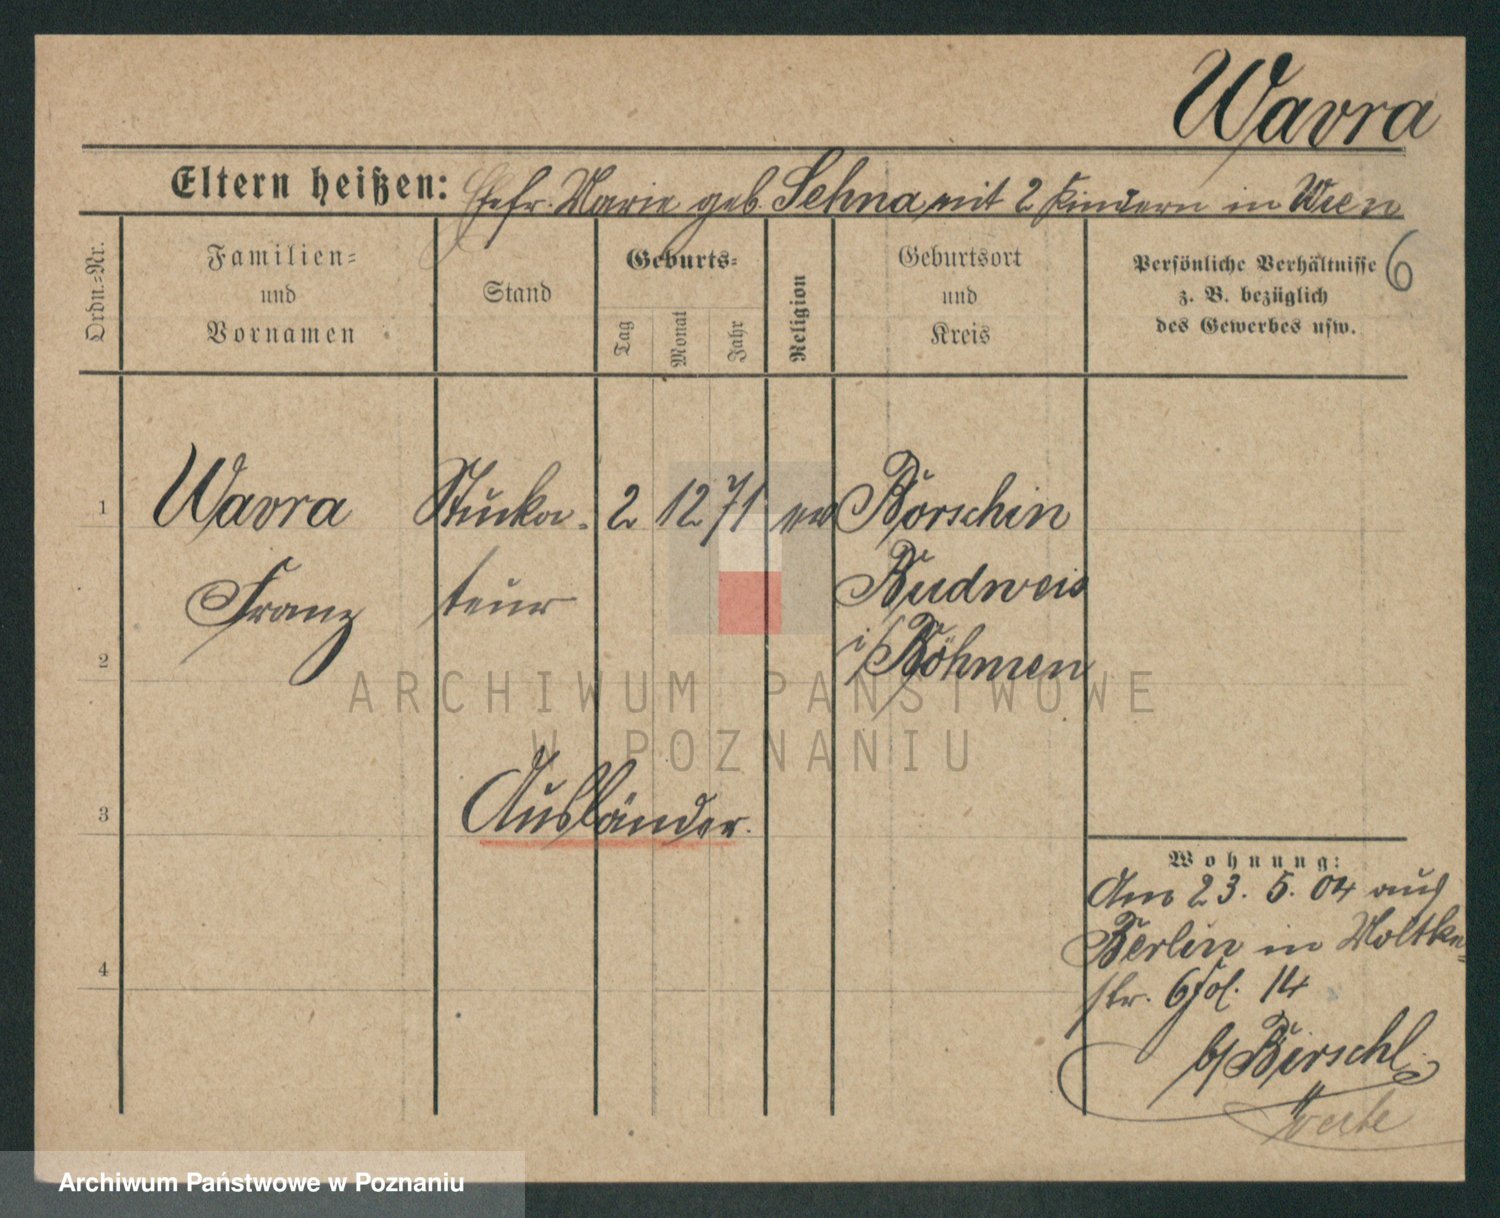 Wavra
Eltern heißen: Ehefr. Marie geb. Sehna mit 2 Kindern in Wien
Ordn.-Nr.
Familien-
und
Vornamen
Stand
Geburts-
Tag
Monat
Jahr
Religion
Geburtsort
und
Kreis
Persönliche Verhältnisse
z. B. bezüglich
des Gewerbes usw.
6
1
Wavra Stucka- 2 12 71 Börschin
Franz teur Budweis
2
i/Böhmen
ARCHIWUM PAŃSTWOWE
W POZNANIU
3
Ausländer.
Wohnung:
Am 23. 5. 04 aus
Berlin in Moltke-
4
str. 6 Fol. 14
b/ Birschl
Archiwum Państwowe w Poznaniu